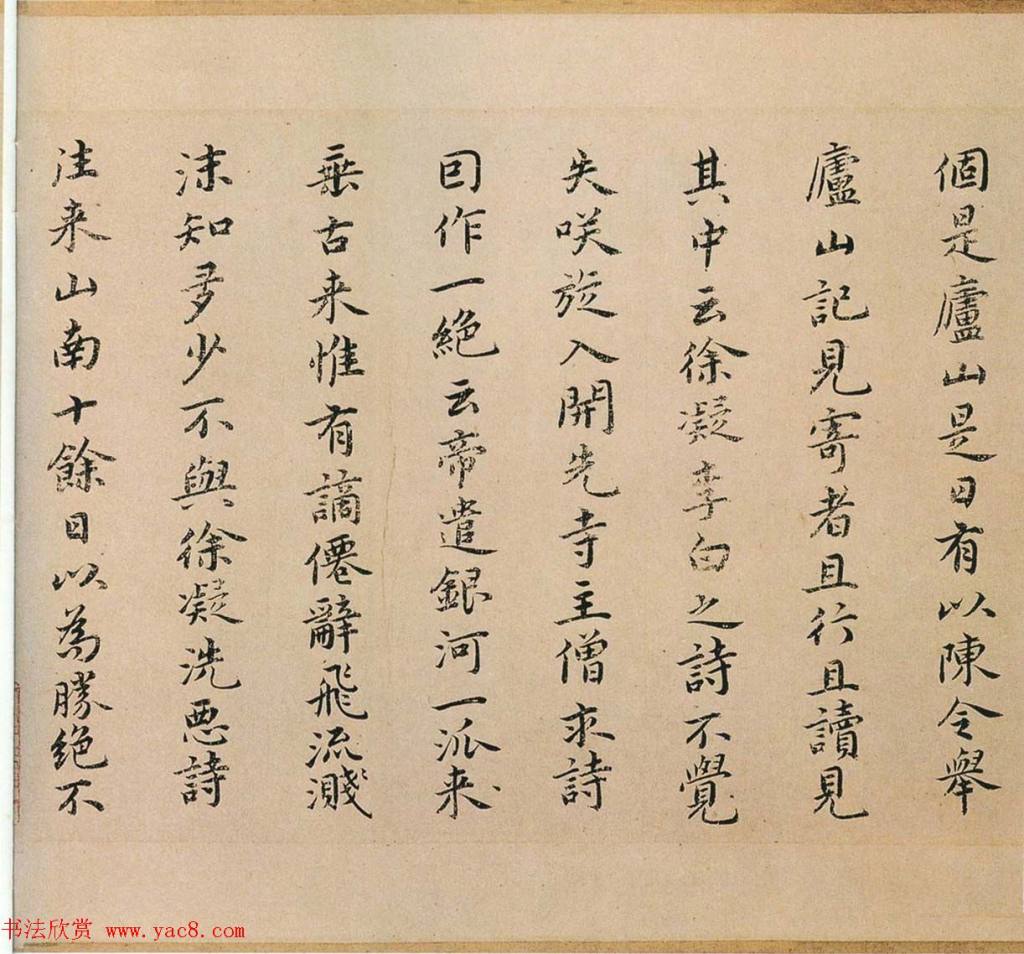 個是廬山是日有以陳令舉
廬山記見寄者且行且讀見
其中云徐凝李白之詩不覺
失咲旋入開先寺主僧求詩
因作一絶云帝遣銀河一派来
垂古来惟有謫僊辭飛流濺
沫知多少不與徐凝洗惡詩
往来山南十餘日以為勝絶不
书法欣赏 www.yac8.com